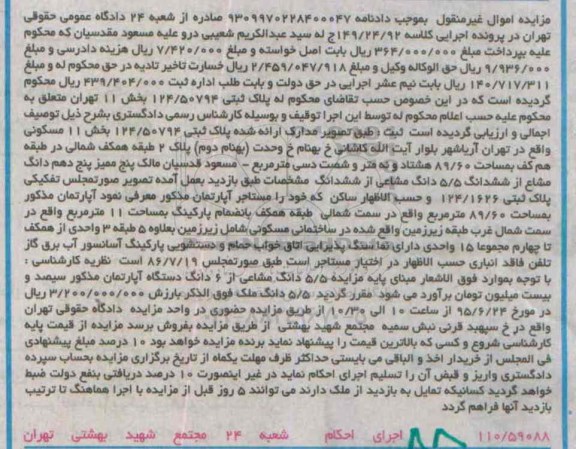 مزایده اموال غیرمنقول بموجب دادنامه ۹۳۰۹۹۷۰۲۲۸۴۰۰۰۴۷ صادره از شعبه ۲۴ دادگاه عمومی حقوقی
تهران در پرونده اجرایی کلاسه ۱۴۹/۲۴/۹۲ج له سید عبدالکریم شعیبی درو علیه مسعود مقدسیان که محکوم
علیه بپرداخت مبلغ ۳۶۴/۰۰۰/۰۰۰ ریال بابت اصل خواسته و مبلغ ۷/۴۲۰/۰۰۰ ریال هزینه دادرسی و مبلغ
۹/۹۳۶/۰۰۰ ریال حق الوکاله وکیل و مبلغ ۲/۴۵۹/۰۴۷/۹۱۸ ریال خسارت تاخیر تادیه در حق محکوم له و مبلغ
۱۴۰/۷۱۷/۳۱۱ ریال بابت نیم عشر اجرایی در حق دولت و بابت طلب اداره ثبت ۴۳۹/۴۰۴/۰۰۰ ریال محکوم
گردیده است که در این خصوص حسب تقاضای محکوم له پلاک ثبتی ۱۲۴/۵۰۷۹۴ بخش ۱۱ تهران متعلق به
محکوم علیه حسب اعلام محکوم له توسط این اجرا توقیف و بوسیله کارشناس رسمی دادگستری بشرح ذیل توصیف
اجمالی و ارزیابی گردیده است ثبت : طبق تصویر مدارک ارائه شده پلاک ثبتی ۱۲۴/۵۰۷۹۴ بخش ۱۱ مسکونی
واقع در تهران آریاشهر بلوار آیت الله کاشانی خ بهنام خ وحدت (بهنام دوم) پلاک ۲ طبقه همکف شمالی در طبقه
هم کف بمساحت ۸۹/۶۰ هشتاد و نه متر و شصت دسی مترمربع - مسعود قدسیان مالک پنج ممیز پنج دهم دانگ
مشاع از ششدانگ ۵/۵ دانگ مشاعی از ششدانگ مشخصات طبق بازدید بعمل آمده تصویر صورتمجلس تفکیکی
پلاک ثبتی ۱۲۴/۱۶۲۶ و حسب الاظهار ساکن که خود را مستاجر آپارتمان مذکور معرفی نمود آپارتمان مذکور
بمساحت ۸۹/۶۰ مترمربع واقع در سمت شمالی طبقه همکف بانضمام پارکینگ بمساحت ۱۱ مترمربع واقع در
سمت شمال غرب طبقه زیرزمین واقع شده در ساختمانی مسکونی شامل زیرزمین بعلاوه ۵ طبقه ۳ واحدی از همکف
تا چهارم مجموعا ۱۵ واحدی دارای نما سنگ پذیرایی اتاق خواب حمام و دستشویی پارکینگ آسانسور آب برق گاز
تلفن فاقد انباری حسب الاظهار در اختیار مستاجر است طبق صورتمجلس ۸۶/۷/۱۹ است نظریه کارشناسی :
با توجه بموارد فوق الاشعار مبنای پایه مزایده ۵/۵ دانگ مشاعی از ۶ دانگ دستگاه آپارتمان مذکور سیصد و
بیست میلیون تومان برآورد می شود مقرر گردید ۵/۵ دانگ ملک فوق الذکر بارزش ۳/۲۰۰/۰۰۰/۰۰۰ ریال
در مورخ ۹۵/۶/۲۳ از ساعت ۱۰ الی ۱۰/۳۰ از طریق مزایده حضوری در واحد مزایده دادگاه حقوقی تهران
واقع در خ سپهبد قرنی نبش سمیه مجتمع شهید بهشتی از طریق مزایده بفروش برسد مزایده از قیمت پایه
کارشناسی شروع و کسی که بالاترین قیمت را پیشنهاد نماید برنده مزایده خواهد بود ۱۰ درصد مبلغ پیشنهادی
فی المجلس از خریدار اخذ و الباقی می بایستی حداکثر ظرف مهلت یکماه از تاریخ برگزاری مزایده بحساب سپرده
دادگستری واریز و قبض آن را تسلیم اجرای احکام نماید در غیر اینصورت ۱۰ درصد دریافتی بنفع دولت ضبط
خواهد گردید کسانیکه تمایل به بازدید از ملک دارند می توانند ۵ روز قبل از مزایده با اجرا هماهنگ تا ترتیب
بازدید آنها فراهم گردد
۱۱۰/۵۹۰۸۸ اجرای احکام شعبه ۲۴ مجتمع شهید بهشتی تهران